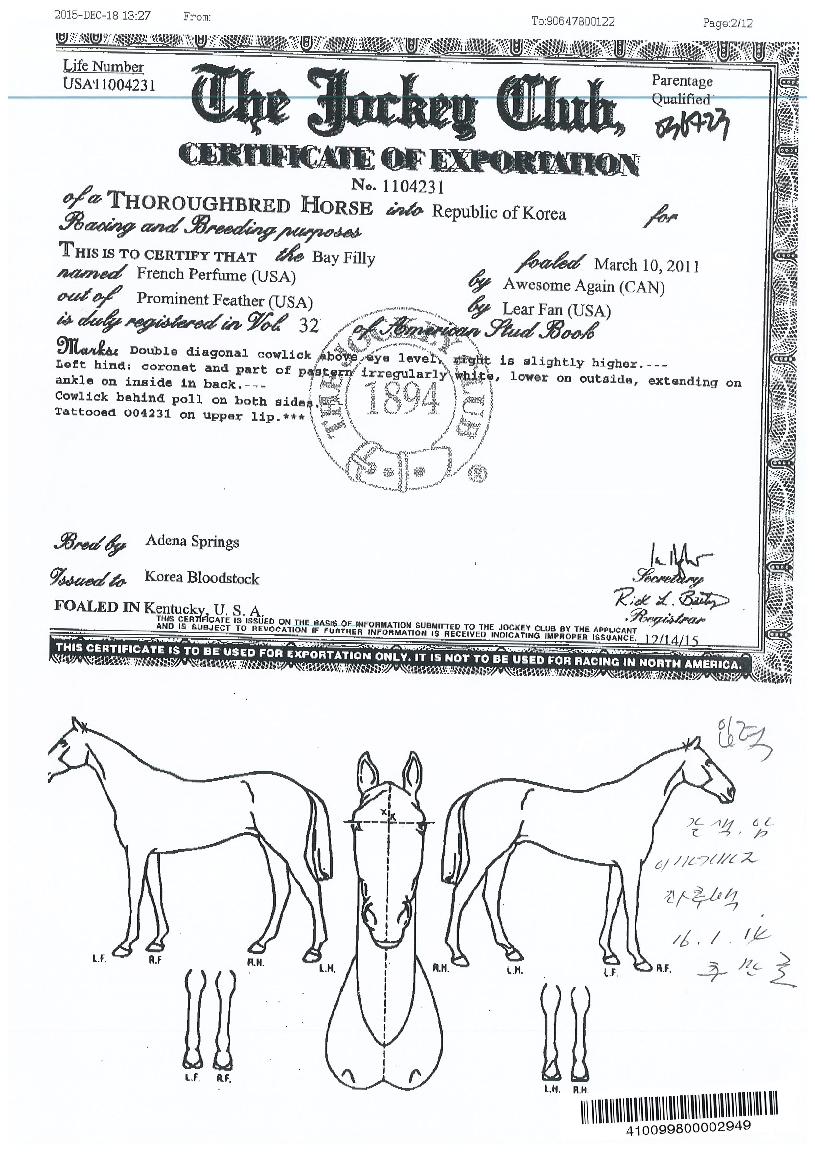 2015-DEC-18 13:27 From: To:90647800122 Page:2/12
Life Number
USA11004231
Parentage
Qualified
The Jockey Club,
CERTIFICATE OF EXPORTATION
No. 1104231
of a THOROUGHBRED HORSE into Republic of Korea for
Racing and Breeding purposes
THIS IS TO CERTIFY THAT the Bay Filly foaled March 10, 2011
named French Perfume (USA) by Awesome Again (CAN)
out of Prominent Feather (USA) by Lear Fan (USA)
is duly registered in Vol. 32 of American Stud Book
Marks: Double diagonal cowlick above eye level, right is slightly higher.---
Left hind: coronet and part of pastern irregularly white, lower on outside, extending on
ankle on inside in back.---
Cowlick behind poll on both sides.
Tattooed O04231 on upper lip.***
THE JOCKEY CLUB
1894
®
Bred by Adena Springs
Issued to Korea Bloodstock
Secretary
Registrar
FOALED IN Kentucky, U. S. A.
THIS CERTIFICATE IS ISSUED ON THE BASIS OF INFORMATION SUBMITTED TO THE JOCKEY CLUB BY THE APPLICANT
AND IS SUBJECT TO REVOCATION IF FURTHER INFORMATION IS RECEIVED INDICATING IMPROPER ISSUANCE. 12/14/15
THIS CERTIFICATE IS TO BE USED FOR EXPORTATION ONLY. IT IS NOT TO BE USED FOR RACING IN NORTH AMERICA.
갈색. 암
좌후백
16. 1. 14
L.F. R.F R.H. L.H. R.H. L.H. L.F. R.F.
L.F. R.F. L.H. R.H.
410099800002949